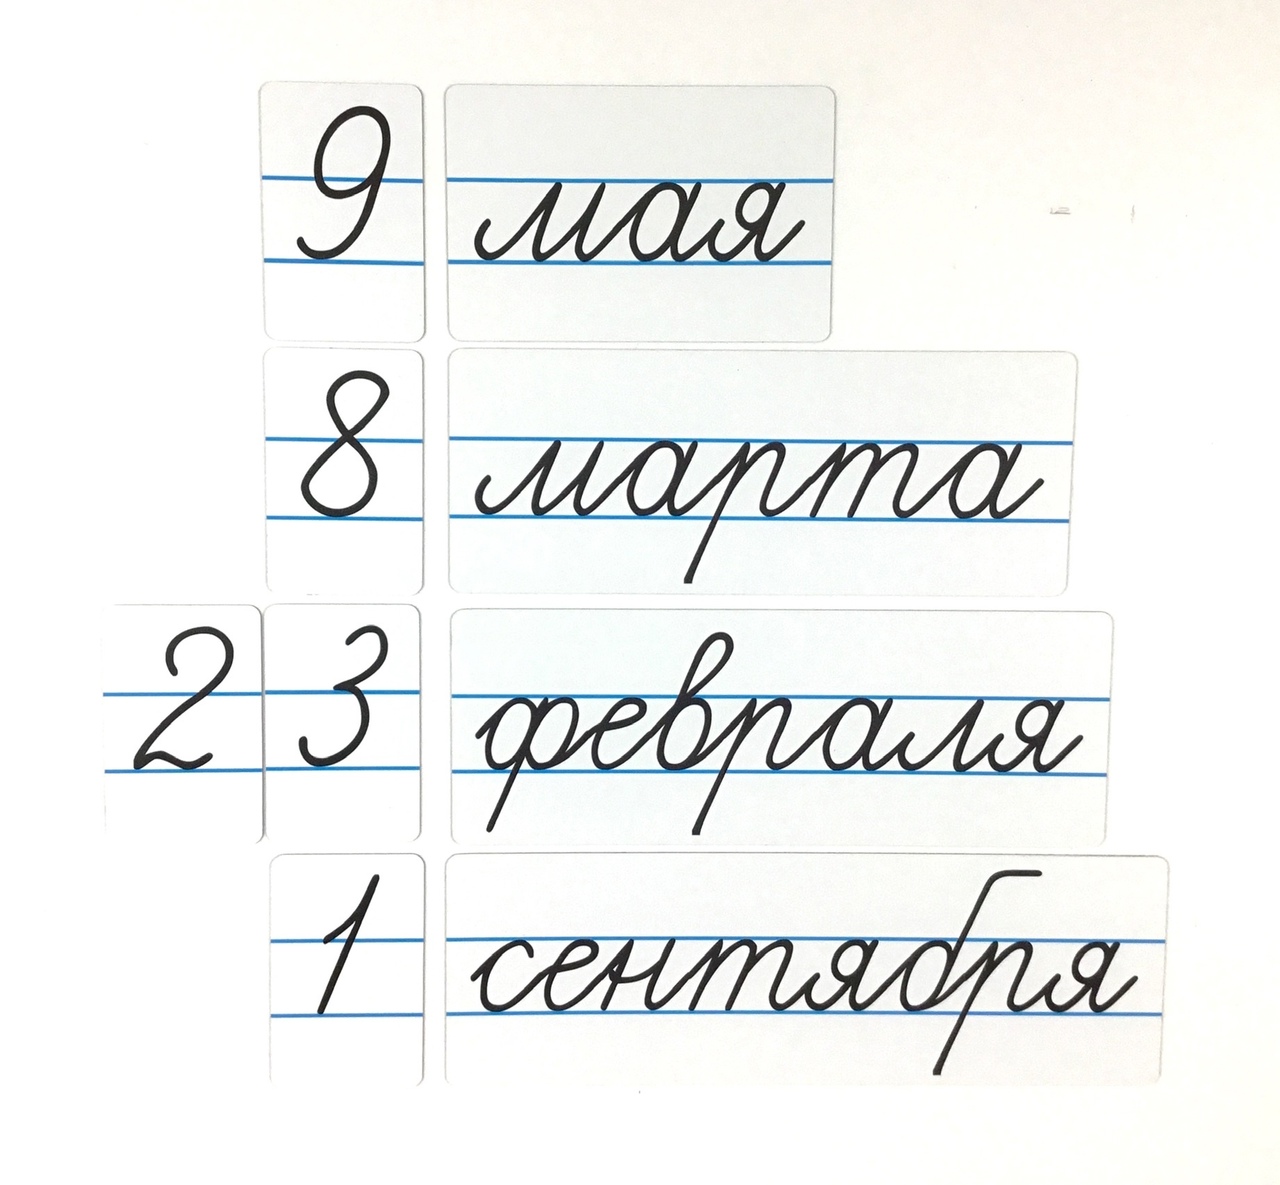 9 мая
8 марта
23 февраля
1 сентября